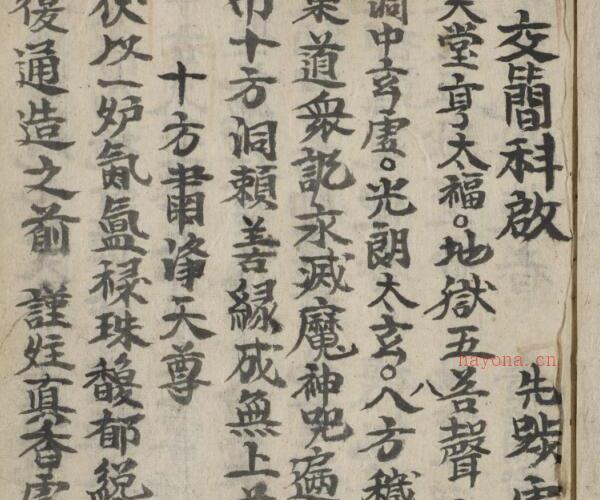 交簡科啟 先步虛
天堂享太福。地獄五苦聲
洞中玄虛。光朗太玄。八方穢
道眾訖永滅魔神咒遍
十方洞賴善緣成無上
十方肅淨天尊
伏以一炉氤氳祿珠馥郁銳
後通造之前 謹炷真香虔
hayona.cn